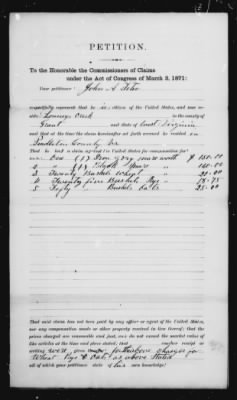 PETITION.
To the Honorable the Commissioners of Claims
under the Act of Congress of March 3, 1871:
Your petitioner John A
respectfully represent that he is citizen of the United States, and now re-
side Creek in the county of
Grant and State of West Virginia
and that at the time the claim hereinafter set forth accrued he resided in
Pendleton County Va
That he had a claim against the United States for compensation for
One (1) Iron grey mare worth $ 150.00
2 " (1)
3 Twenty Bushels Wheat
4 Twenty five Bushels Rye 18.75
5 Fifty Bushels Oats 25.00
That said claim has not been paid by any officer or agent of the United States,
nor any compensation made or other property received in lieu thereof; that the
prices charged are reasonable and just, and do not exceed the market value of
the articles at the time and place stated; that receipt in
writing
Wheat Rye & Oats as above stated
all of which your petitioner state of his own knowledge!